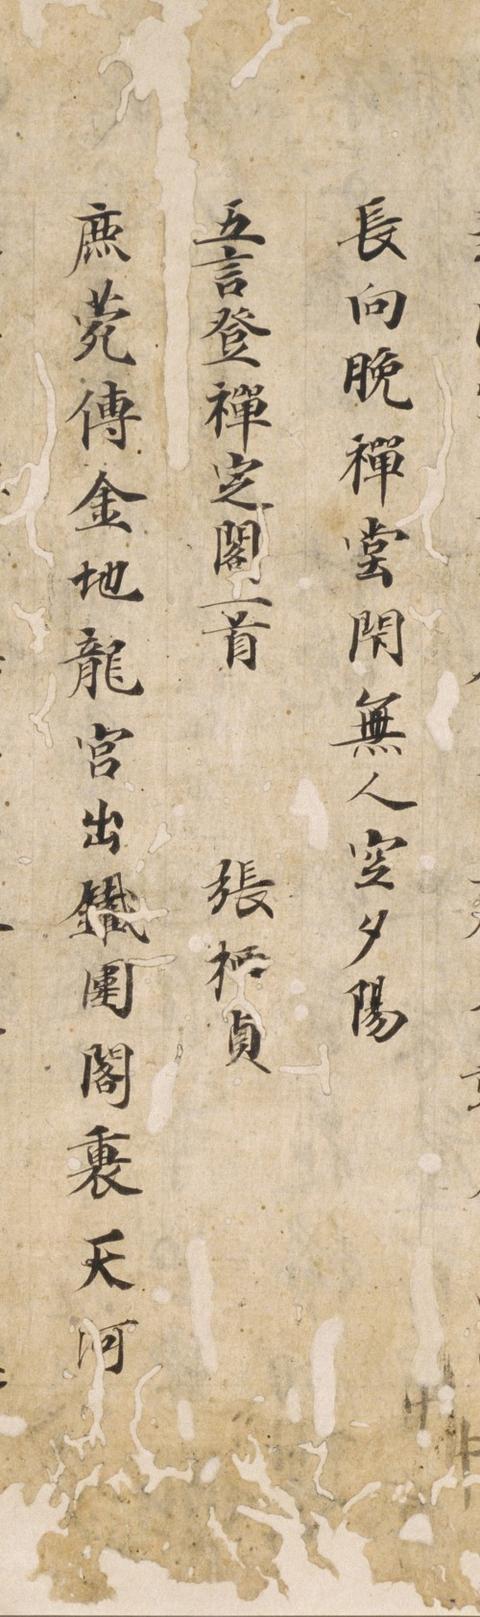 長向晩禪堂閇無人空夕陽
五言登禪定閣二首 張栖貞
庶菀傳金地龍宮出鐵圍閣裏天河